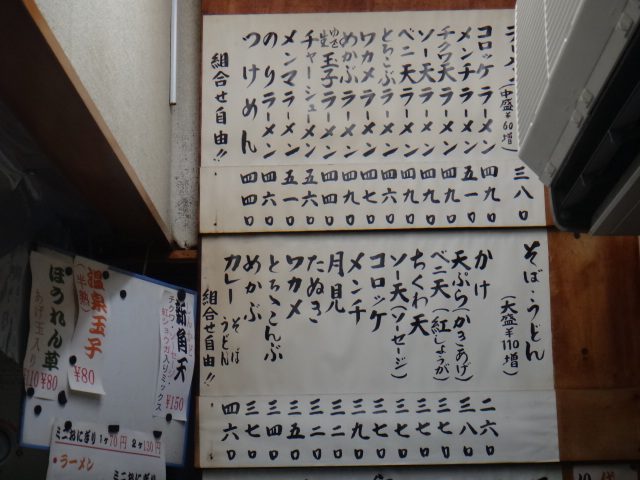 (中盛¥60増) 三八〇
コロッケラーメン 四九〇
メンチラーメン 五一〇
チクワ天ラーメン 四九〇
ソー天ラーメン 四九〇
ベニ天ラーメン 四九〇
とろこぶラーメン 四六〇
ワカメラーメン 四七〇
めかぶラーメン 四九〇
ゆで生玉子ラーメン 四四〇
チャーシューメン 五六〇
メンマラーメン 五一〇
のりラーメン 四六〇
つけめん 四四〇
組合せ自由!!
そば・うどん (大盛¥110増)
かけ 二六〇
天ぷら(かきあげ) 三八〇
ベニ天(紅しょうが) 三七〇
ちくわ天 三七〇
ソー天(ソーセージ) 三七〇
コロッケ 三七〇
メンチ 三九〇
月見 三二〇
たぬき 三二〇
ワカメ 三五〇
とろこんぶ 三四〇
めかぶ 三七〇
カレーそばうどん 四六〇
組合せ自由!!
新角天
紅ショウガ入りミックス
¥150
温泉玉子
(半熟)
¥80
ほうれん草
あげ玉入り
¥80
ミニおにぎり 1ヶ70円 2ヶ130円
・ラーメン
ミニおにぎり